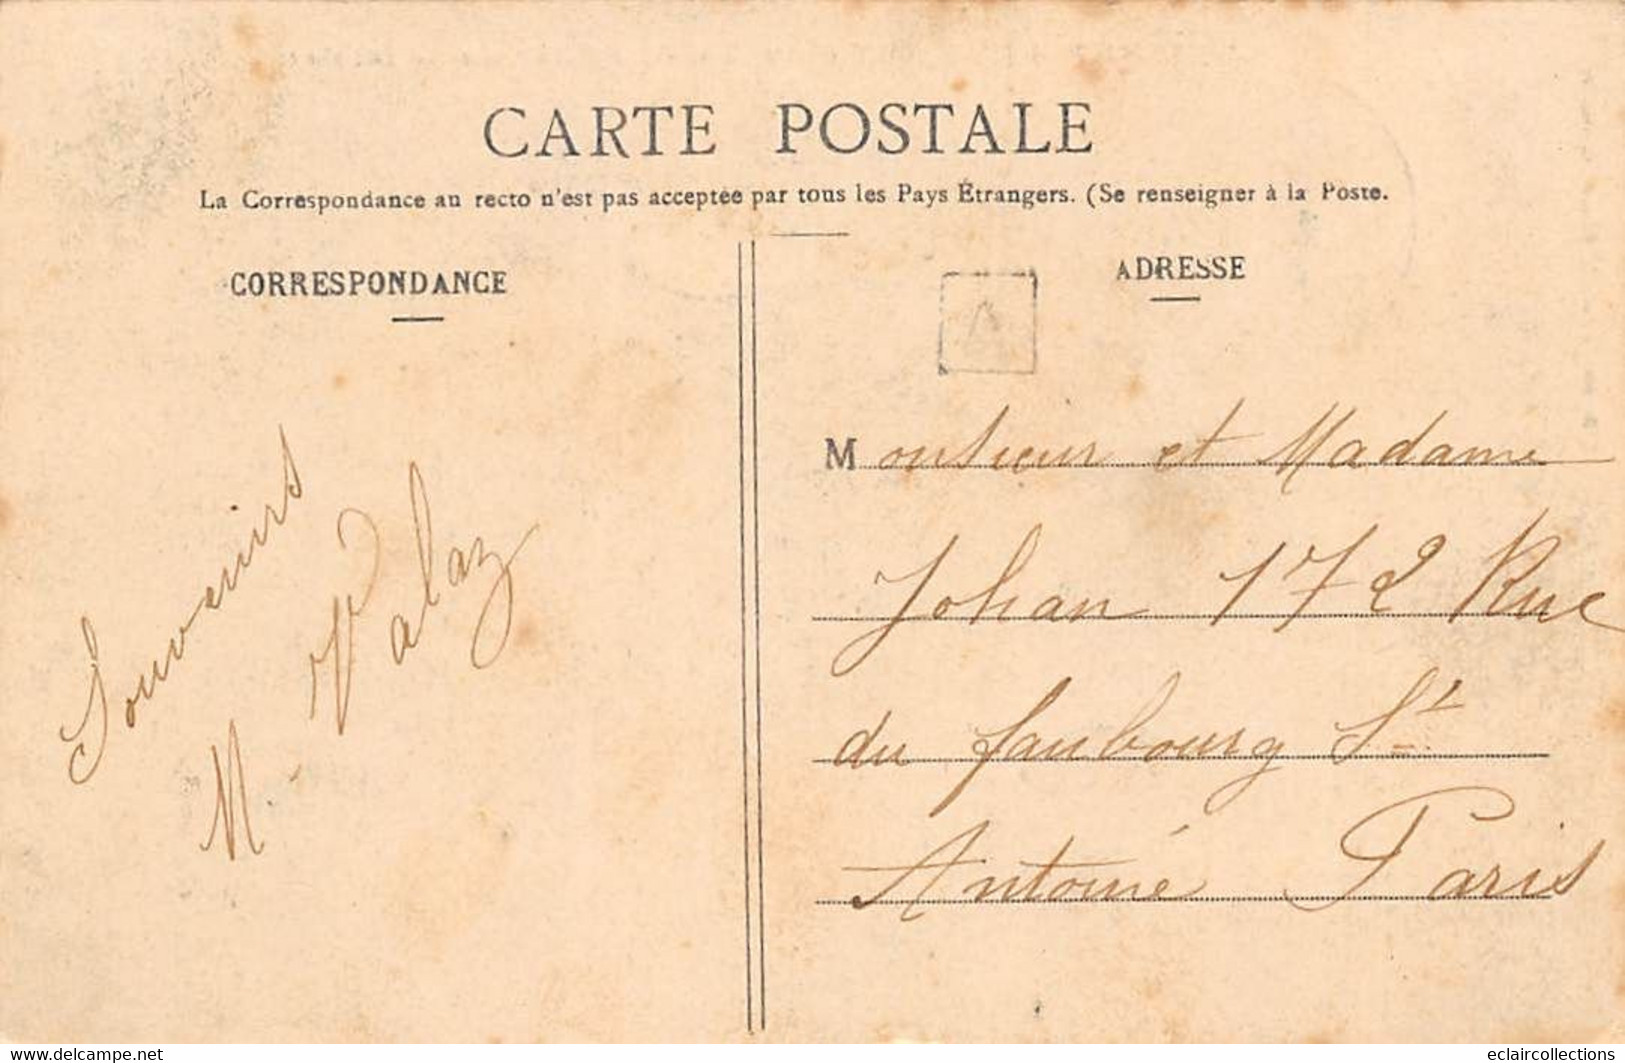 CARTE POSTALE
La Correspondance au recto n'est pas acceptée par tous les Pays Étrangers. (Se renseigner à la Poste.
CORRESPONDANCE
Souvenirs
N. Valaz
ADRESSE
Monsieur et Madame
Johan 172 Rue
du faubourg St
Antoine Paris
www.delcampe.net
eclaircollections